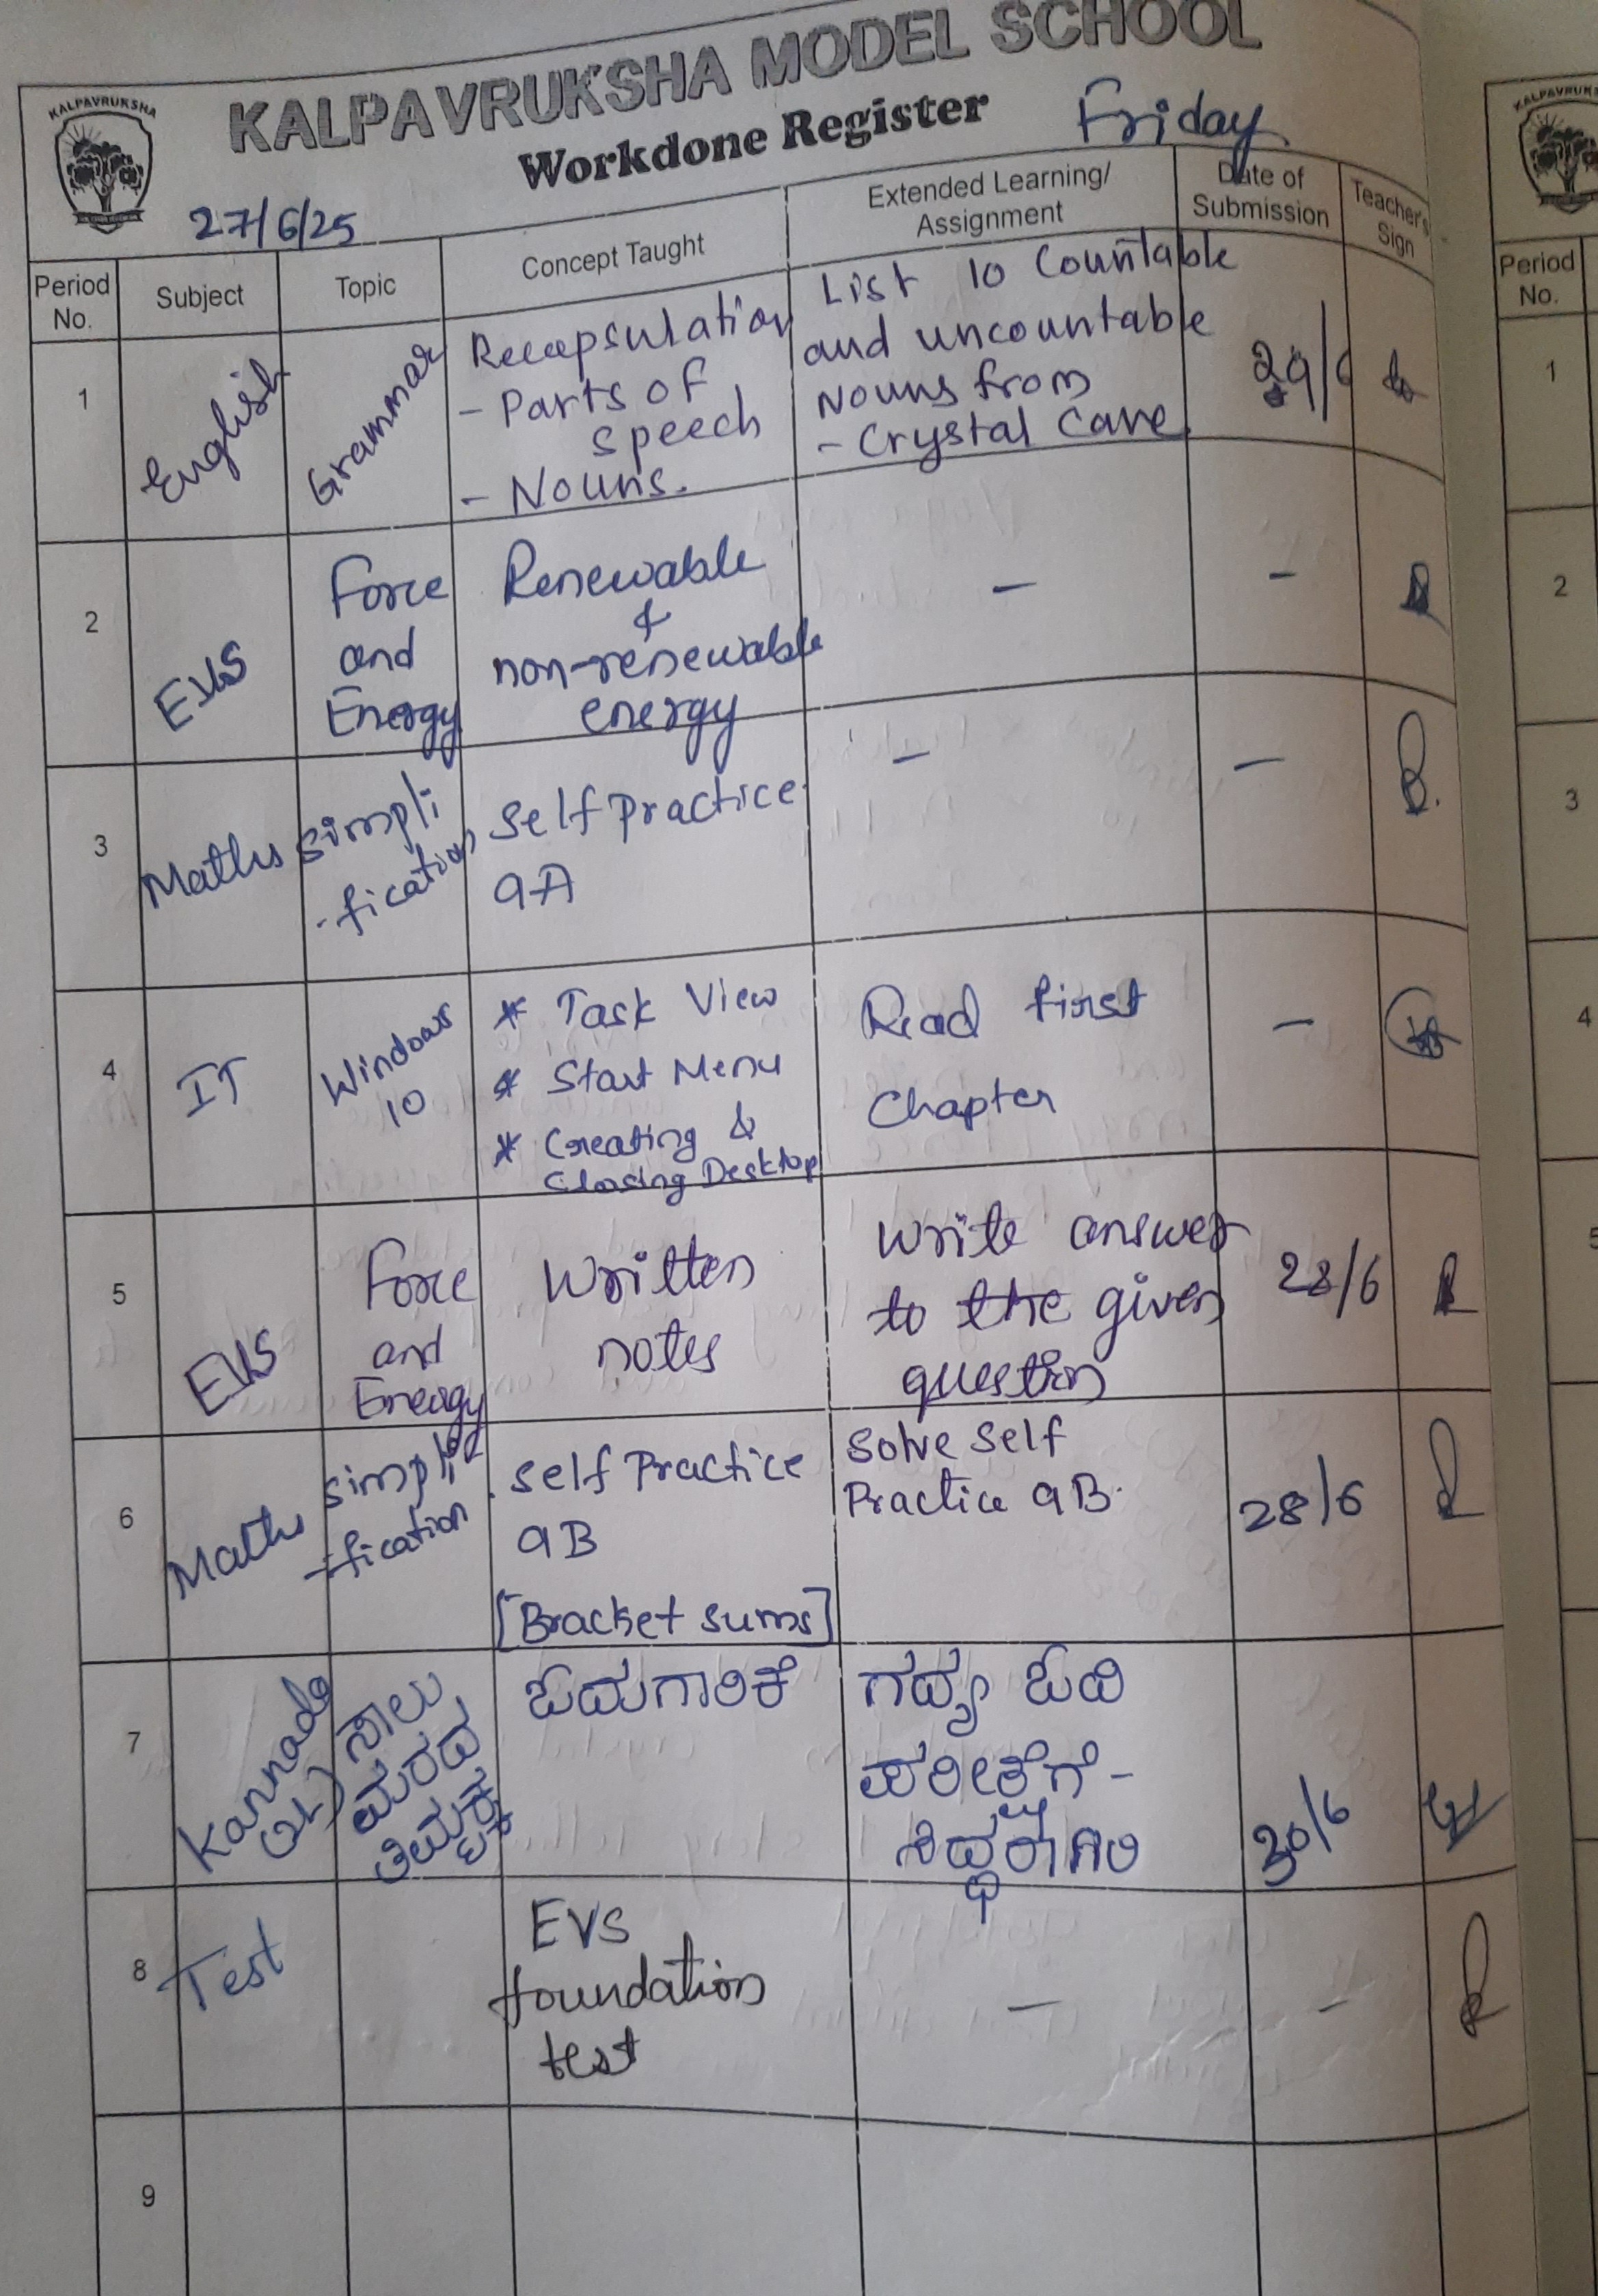 KALPAVRUKSHA MODEL SCHOOL
KALPAVRUKSHA
Workdone Register
Friday
27/6/25
Period No.
Subject
Topic
Concept Taught
Extended Learning/
Assignment
Date of
Submission
Teacher's
Sign
1
English
Grammar
Recapsulation
- Parts of
speech
- Nouns.
List 10 Countable
and uncountable
Nouns from
- Crystal Cave
29/6
2
EVS
Force
and
Energy
Renewable
&
non-renewable
energy
-
-
3
Maths
simpli
-fication
Self Practice
9A
-
-
4
IT
Windows
10
* Task View
* Start Menu
* Creating &
Closing Desktop
Read first
Chapter
-
5
EVS
Force
and
Energy
Written
notes
Write answer
to the given
question
28/6
6
Maths
simpli
-fication
self Practice
9B
[Bracket sums]
Solve self
Practice 9B.
28/6
7
Kannada
ಸಾಲು
ಮರದ
ತಿಮ್ಮಕ್ಕ
ಓದುಗಾರಿಕೆ
ಗದ್ಯ ಓದಿ
ಪರೀಕ್ಷೆಗೆ -
30/6
8
Test
EVS
foundation
test
-
-
9
Period
No.
1
2
3
4
5